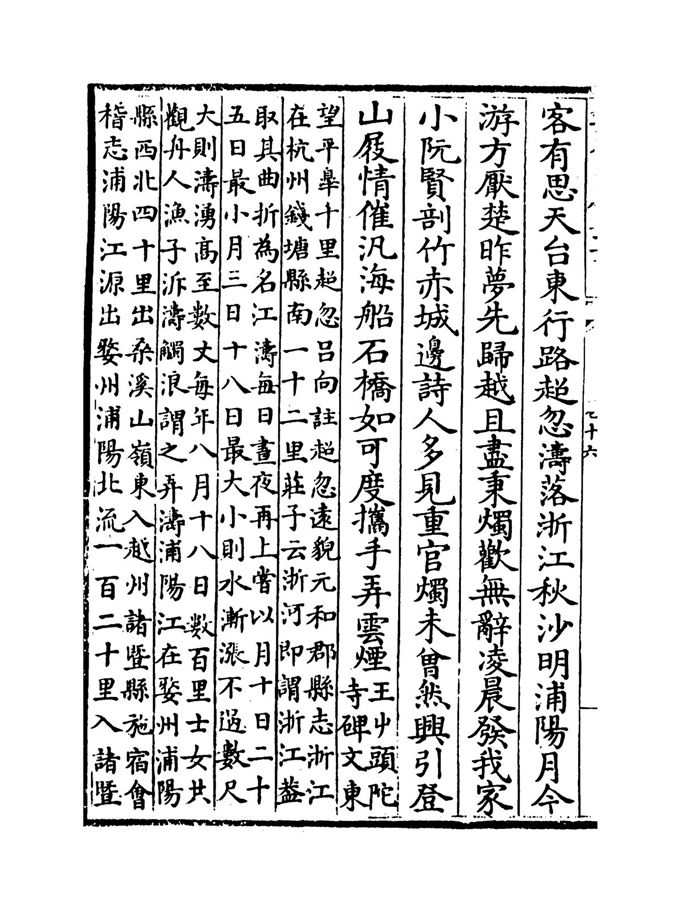 客有思天台東行路超忽濤落浙江秋沙明浦陽月今
游方厭楚昨夢先歸越且盡秉燭歡無辭凌晨發我家
小阮賢剖竹赤城邊詩人多見重官燭未曾然興引登
山屐情催汎海船石橋如可度攜手弄雲煙
王屮頭陀
寺碑文東
望平皐十里超忽吕向註超忽遠貌元和郡縣志浙江
在杭州錢塘縣南一十二里莊子云浙河即謂浙江葢
取其曲折為名江濤每日晝夜再上嘗以月十日二十
五日最小月三日十八日最大小則水漸漲不過數尺
大則濤湧高至數丈每年八月十八日數百里士女共
觀舟人漁子泝濤觸浪謂之弄濤浦陽江在婺州浦陽
縣西北四十里出桑溪山嶺東入越州諸暨縣施宿會
稽志浦陽江源出婺州浦陽北流一百二十里入諸暨